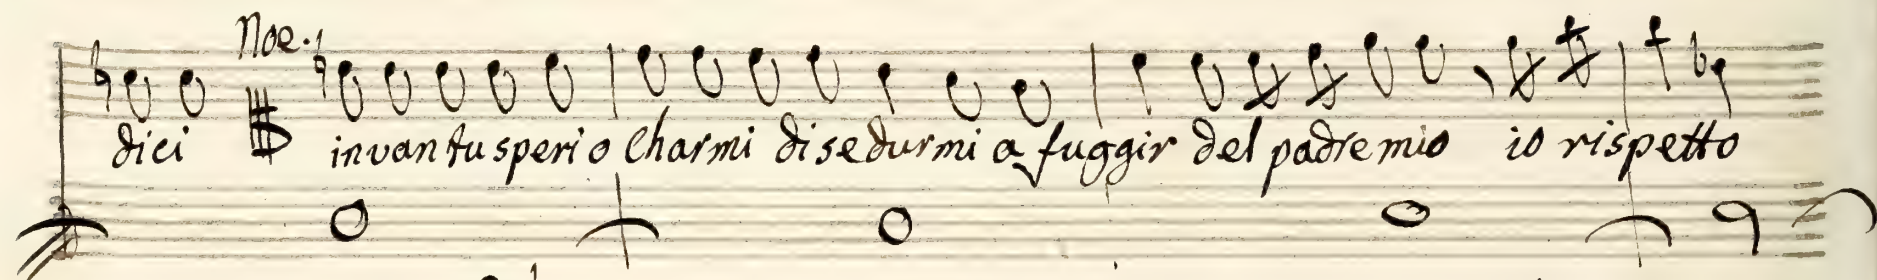 Noe.
dici invan tu speri o Charmi di sedurmi a fuggir del padre mio io rispetto